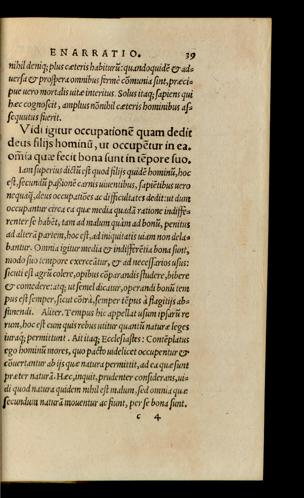 ENARRATIO. 39
nihil deniq; plus cæteris habiturũ: quandoquidẽ & ad-
uersa & prospera omnibus fermè cõmunia sint, præci-
pue uero mortalis uitæ interitus. Solus itaq; sapiens qui
hæc cognoscit, amplius nõnihil cæteris hominibus as-
sequutus fuerit.
Vidi igitur occupationẽ quam dedit
deus filijs hominũ, ut occupẽtur in ea.
omĩa quæ fecit bona sunt in tẽpore suo.
Iam superius dictũ est quod filijs quidẽ hominũ, hoc
est, secundũ paßionẽ carnis uiuentibus, sapiẽtibus uero
nequaq̃, deus occupatiões ac difficultates dedit: ut dum
occupantur circa ea quæ media quadã ratione indiffe-
renter se habẽt, tam ad malum quàm ad bonũ, penitus
ad alterã partem, hoc est, ad iniquitatis uiam non dela-
bantur. Omnia igitur media & indifferẽtia bona sunt,
modo suo tempore exerceãtur, & ad necessarios usus:
sicuti est agrũ colere, opibus cõparandis studere, bibere
& comedere: atq; ut semel dicatur, operandi bonũ tem
pus est semper, sicut cõtrà, semper tẽpus à flagitijs abs
tinendi. Aliter. Tempus hic appellat usum ipsarũ re
rum, hoc est cum quis rebus utitur quantũ naturæ leges
turaq; permittunt. Ait itaq; Ecclesiastes: Contẽplatus
ego hominũ mores, quo pacto uidelicet occupentur &
cõuertantur ab ijs quæ natura permittit, ad ea quæ sunt
præter naturã. Hæc, inquit, prudenter considerans, ui-
di quod natura quidem nihil est malum, sed omnia quæ
secundum naturã mouentur ac fiunt, per se bona sunt.
c 4